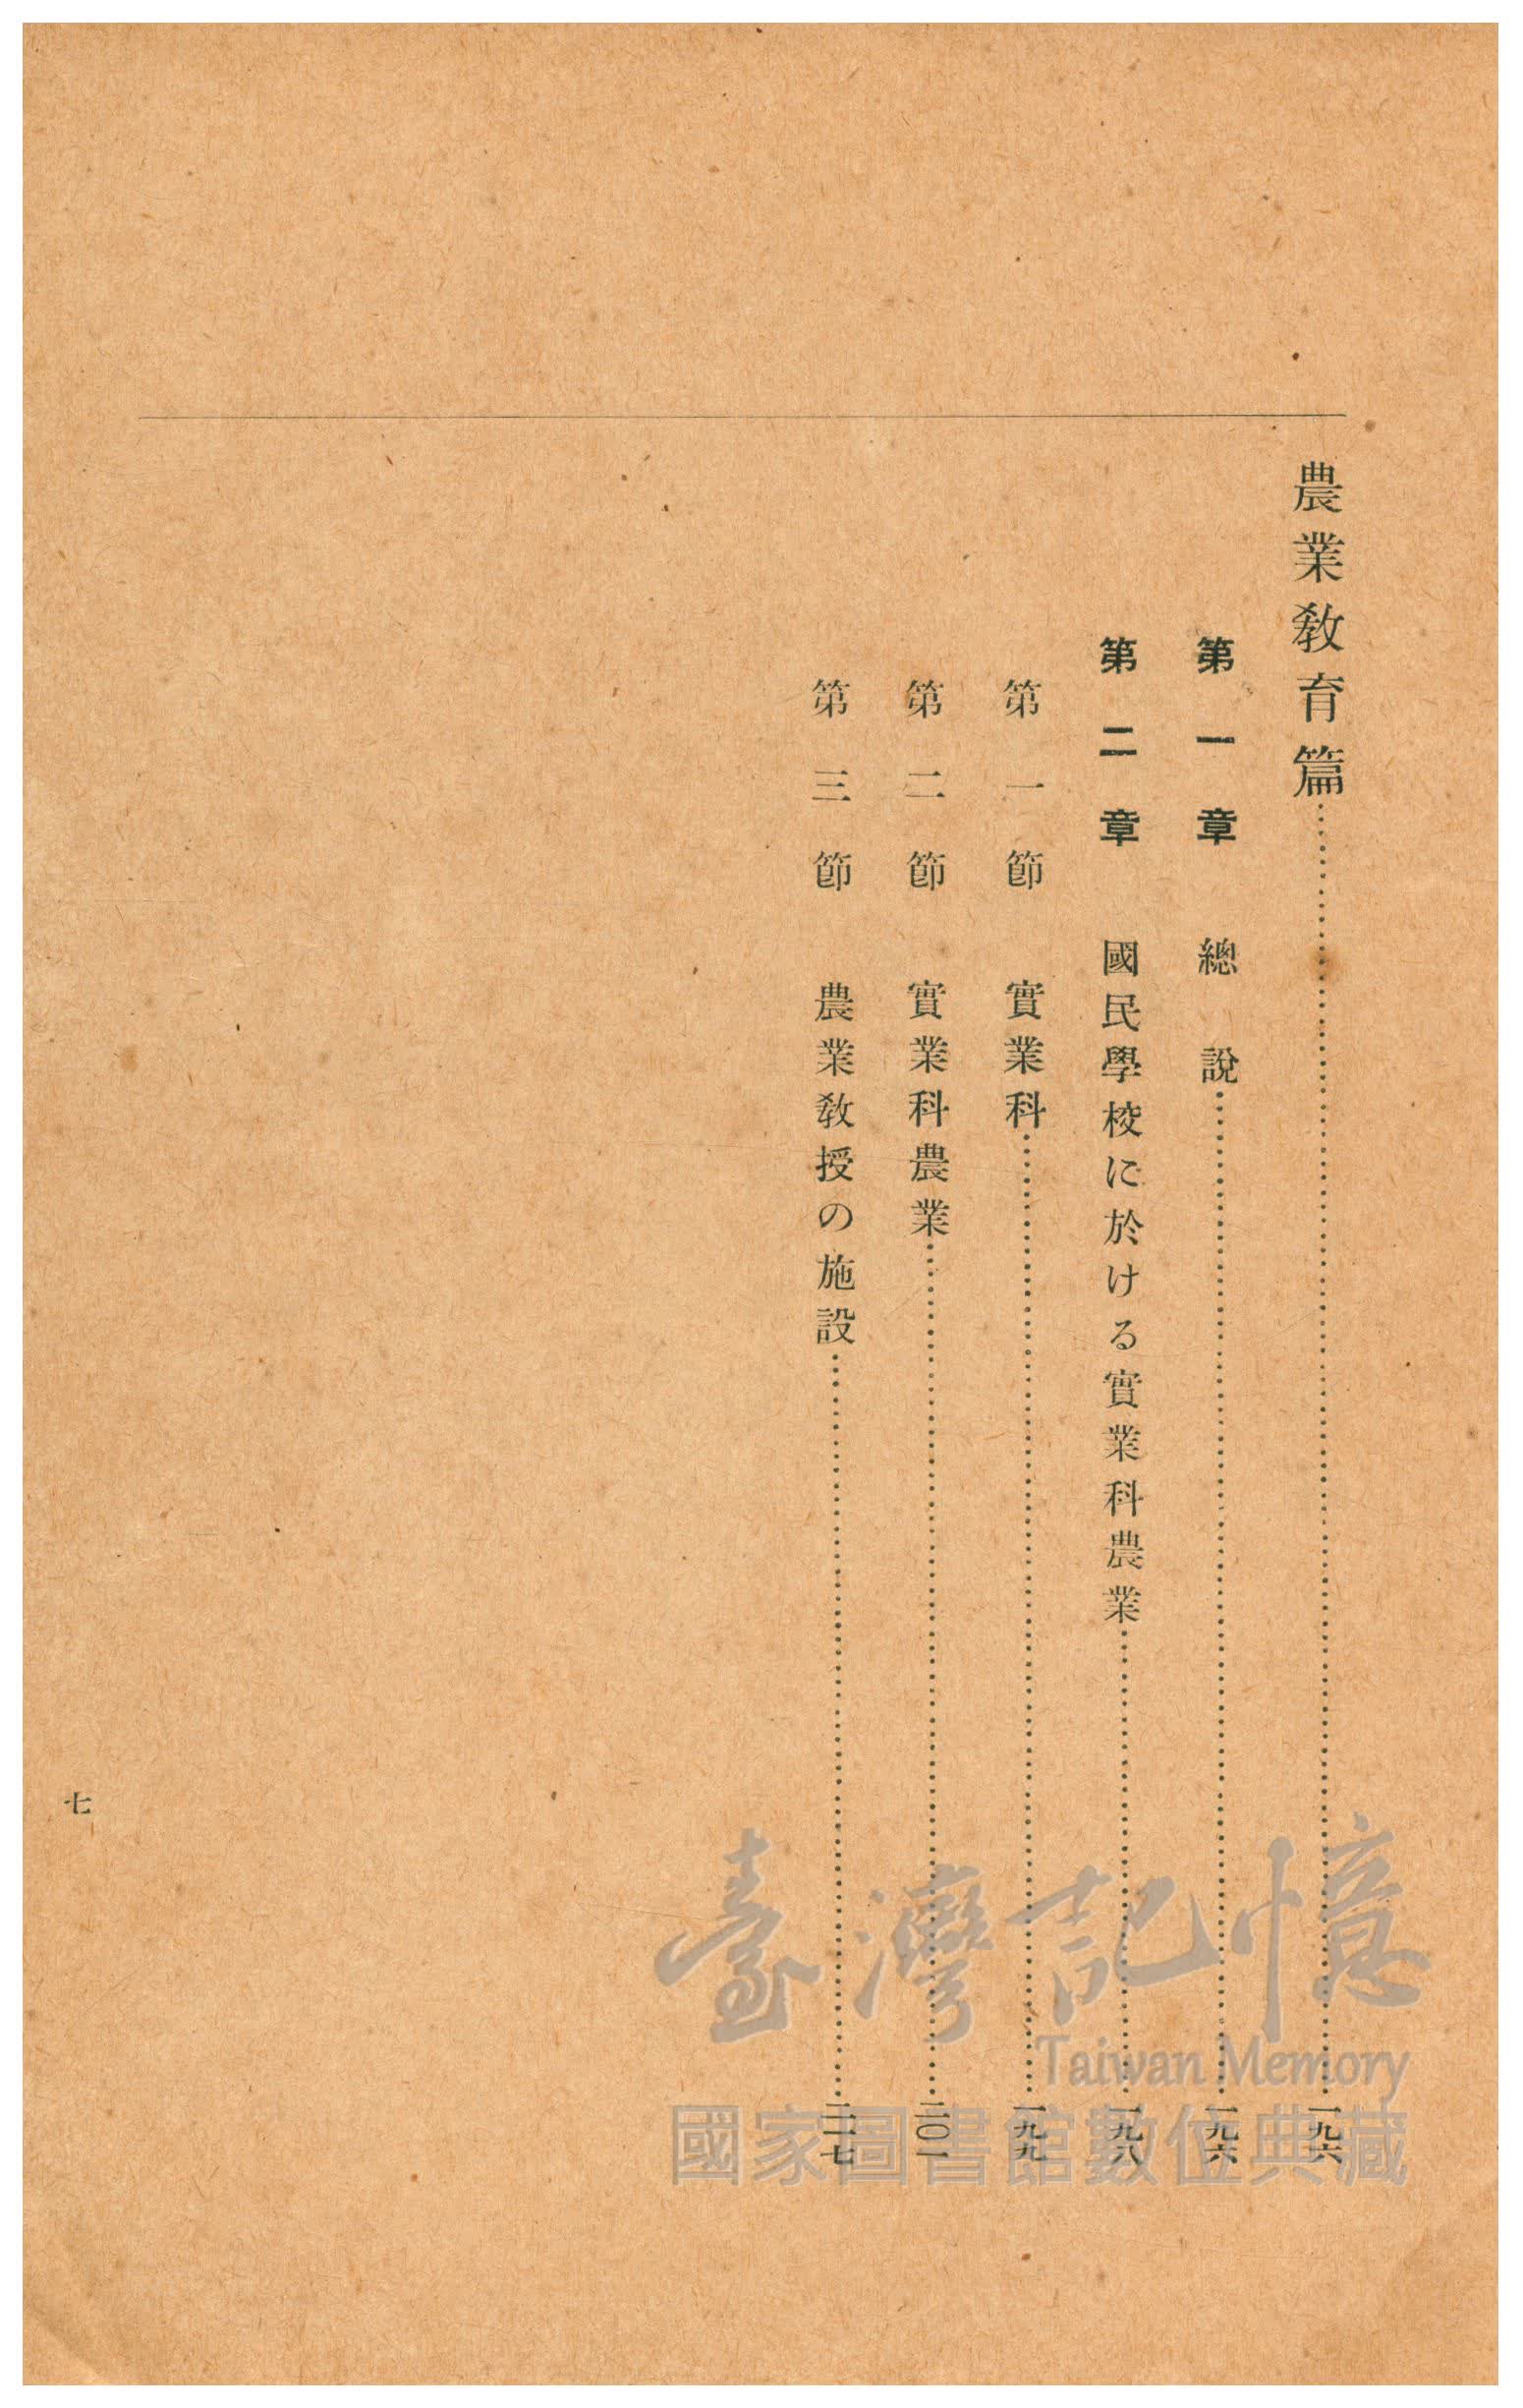 農業教育篇……一九六
第一章 總說……一九六
第二章 國民學校に於ける實業科農業……一九八
第一節 實業科……一九九
第二節 實業科農業……二〇一
第三節 農業教授の施設……二一七
七
臺灣記憶
Taiwan Memory
國家圖書館數位典藏